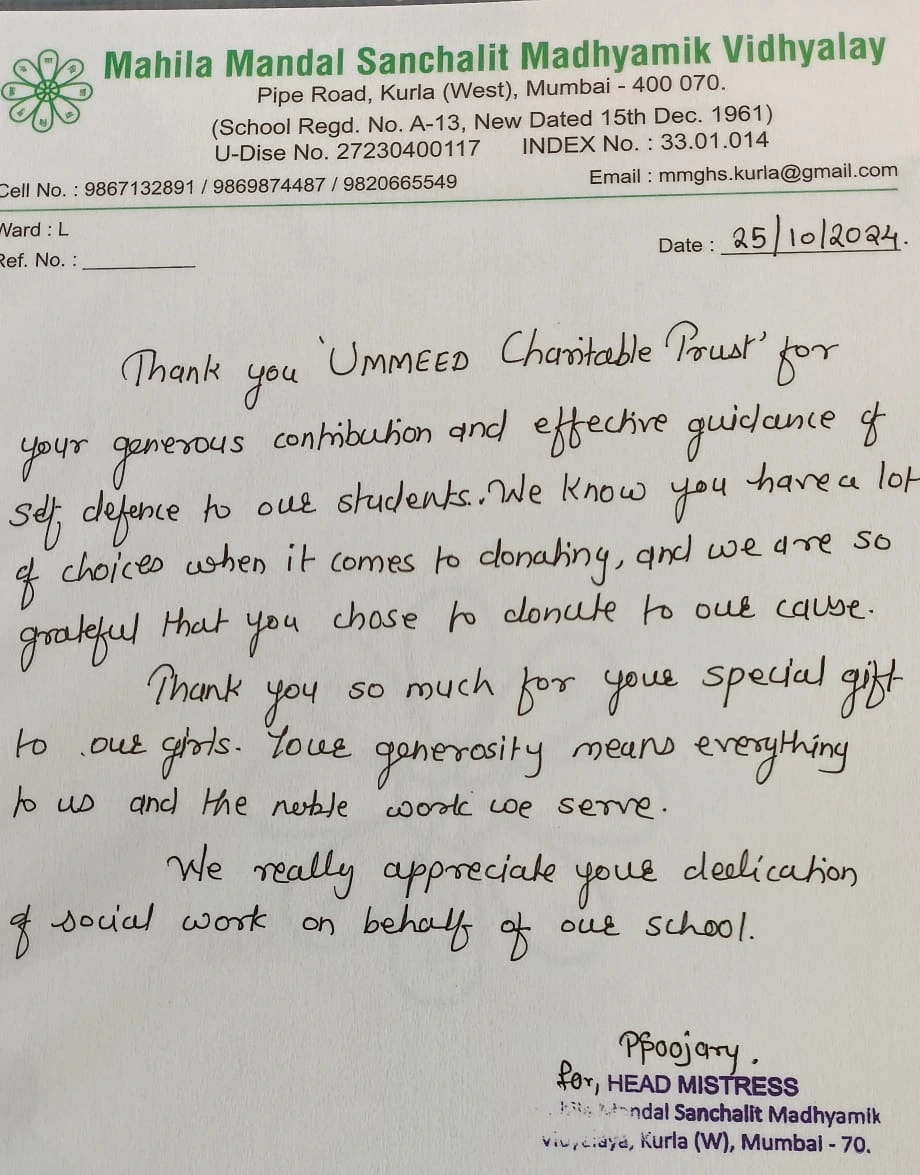 Mahila Mandal Sanchalit Madhyamik Vidhyalay
Pipe Road, Kurla (West), Mumbai - 400 070.
(School Regd. No. A-13, New Dated 15th Dec. 1961)
U-Dise No. 27230400117 INDEX No. : 33.01.014
Cell No. : 9867132891 / 9869874487 / 9820665549 Email : mmghs.kurla@gmail.com
Ward : L
Date : 25/10/2024.
Ref. No. :
Thank you 'UMMEED Charitable Trust' for
your generous contribution and effective guidance of
self, defence to our students.. We know you have a lot
of choices when it comes to donating, and we are so
grateful that you chose to donate to our cause.
Thank you so much for your special gift
to our girls. Your generosity means everything
to us and the noble work we serve.
We really appreciate your dedication
of social work on behalf of our school.
for, HEAD MISTRESS
Sanchalit Madhyamik
Kurla (W), Mumbai - 70.